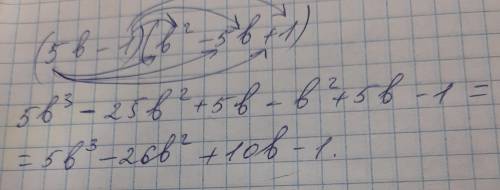 (5b - 1)(b² - 5b + 1)
5b³ - 25b² + 5b - b² + 5b - 1 =
= 5b³ - 26b² + 10b - 1.